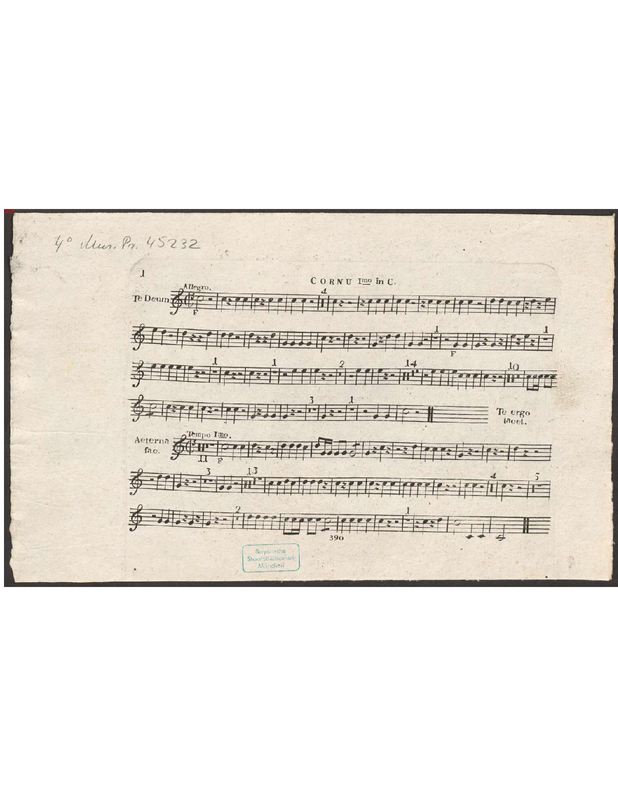 4° Mus. Pr. 45232
1
CORNU Imo in C.
Allegro.
4
Te Deum
F
1
1
F
1
1
2
14
10
3
1
Te ergo
tacet.
Aeterna
fac.
Tempo Imo.
11
F
3
13
4
2
1
390
Bayerische
Staatsbibliothek
München